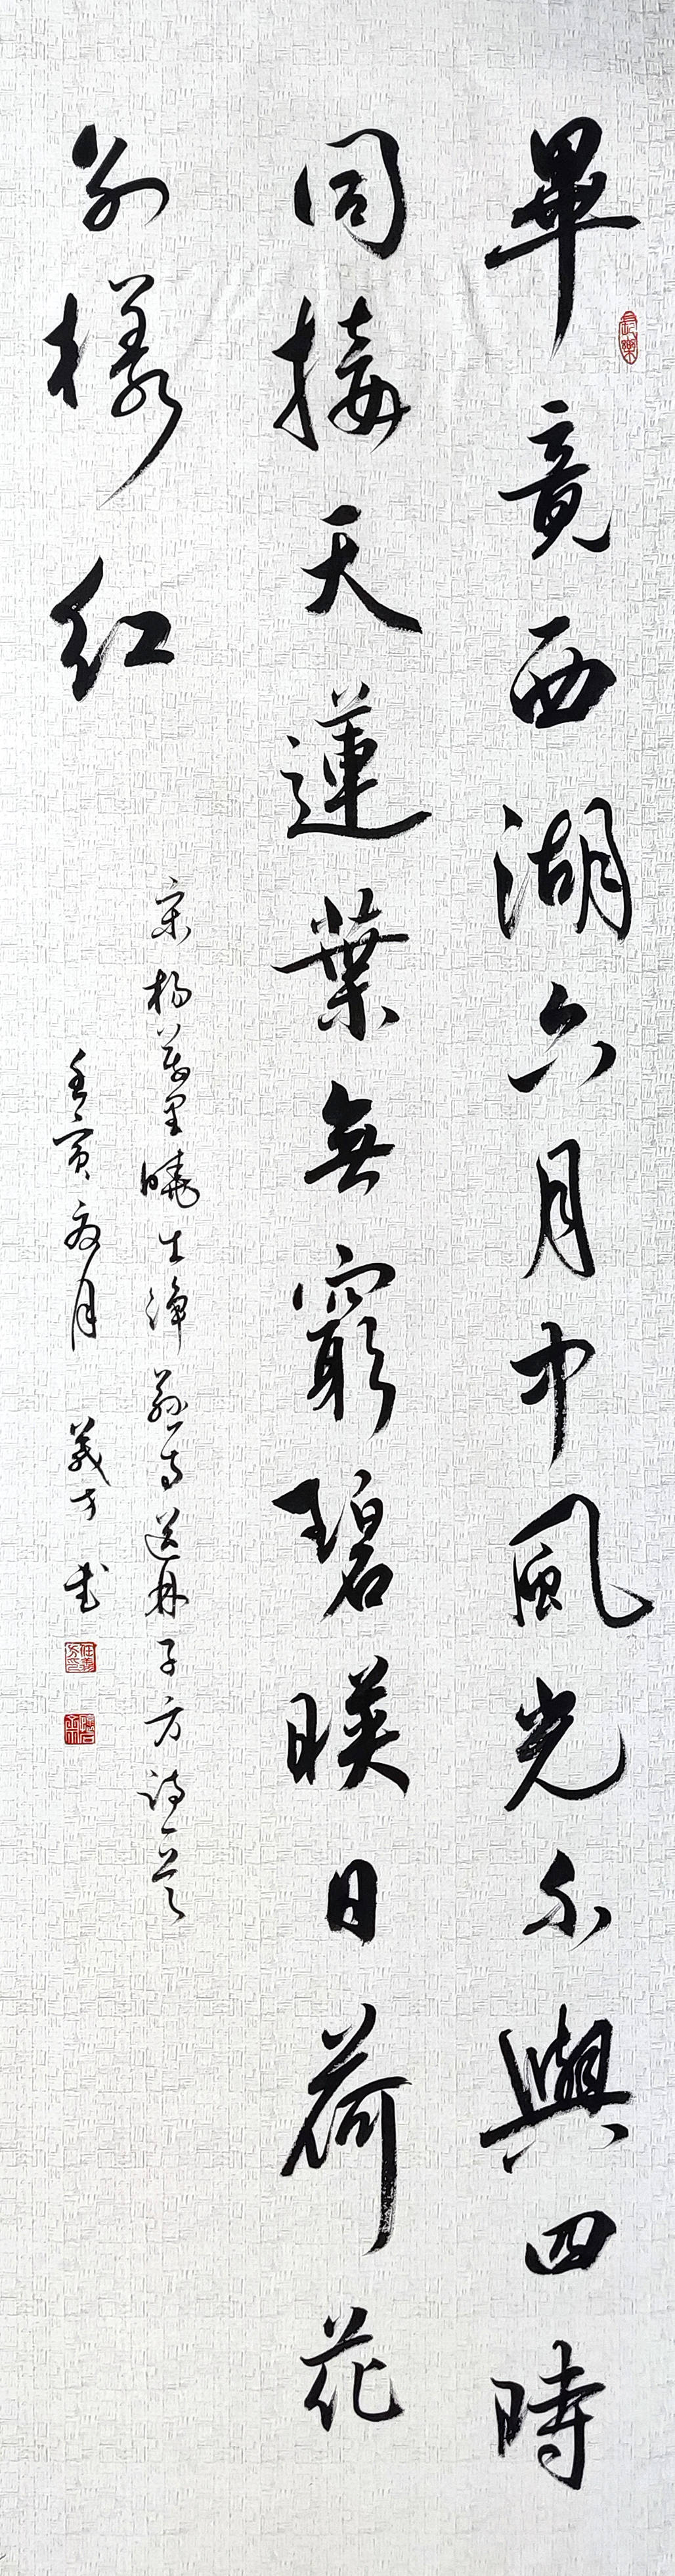 畢竟西湖六月中風光不與四時
同接天蓮葉無窮碧暎日荷花
別樣红
宋楊萬里曉出淨慈寺送林子方詩一首
壬寅夏月 義方書
長樂